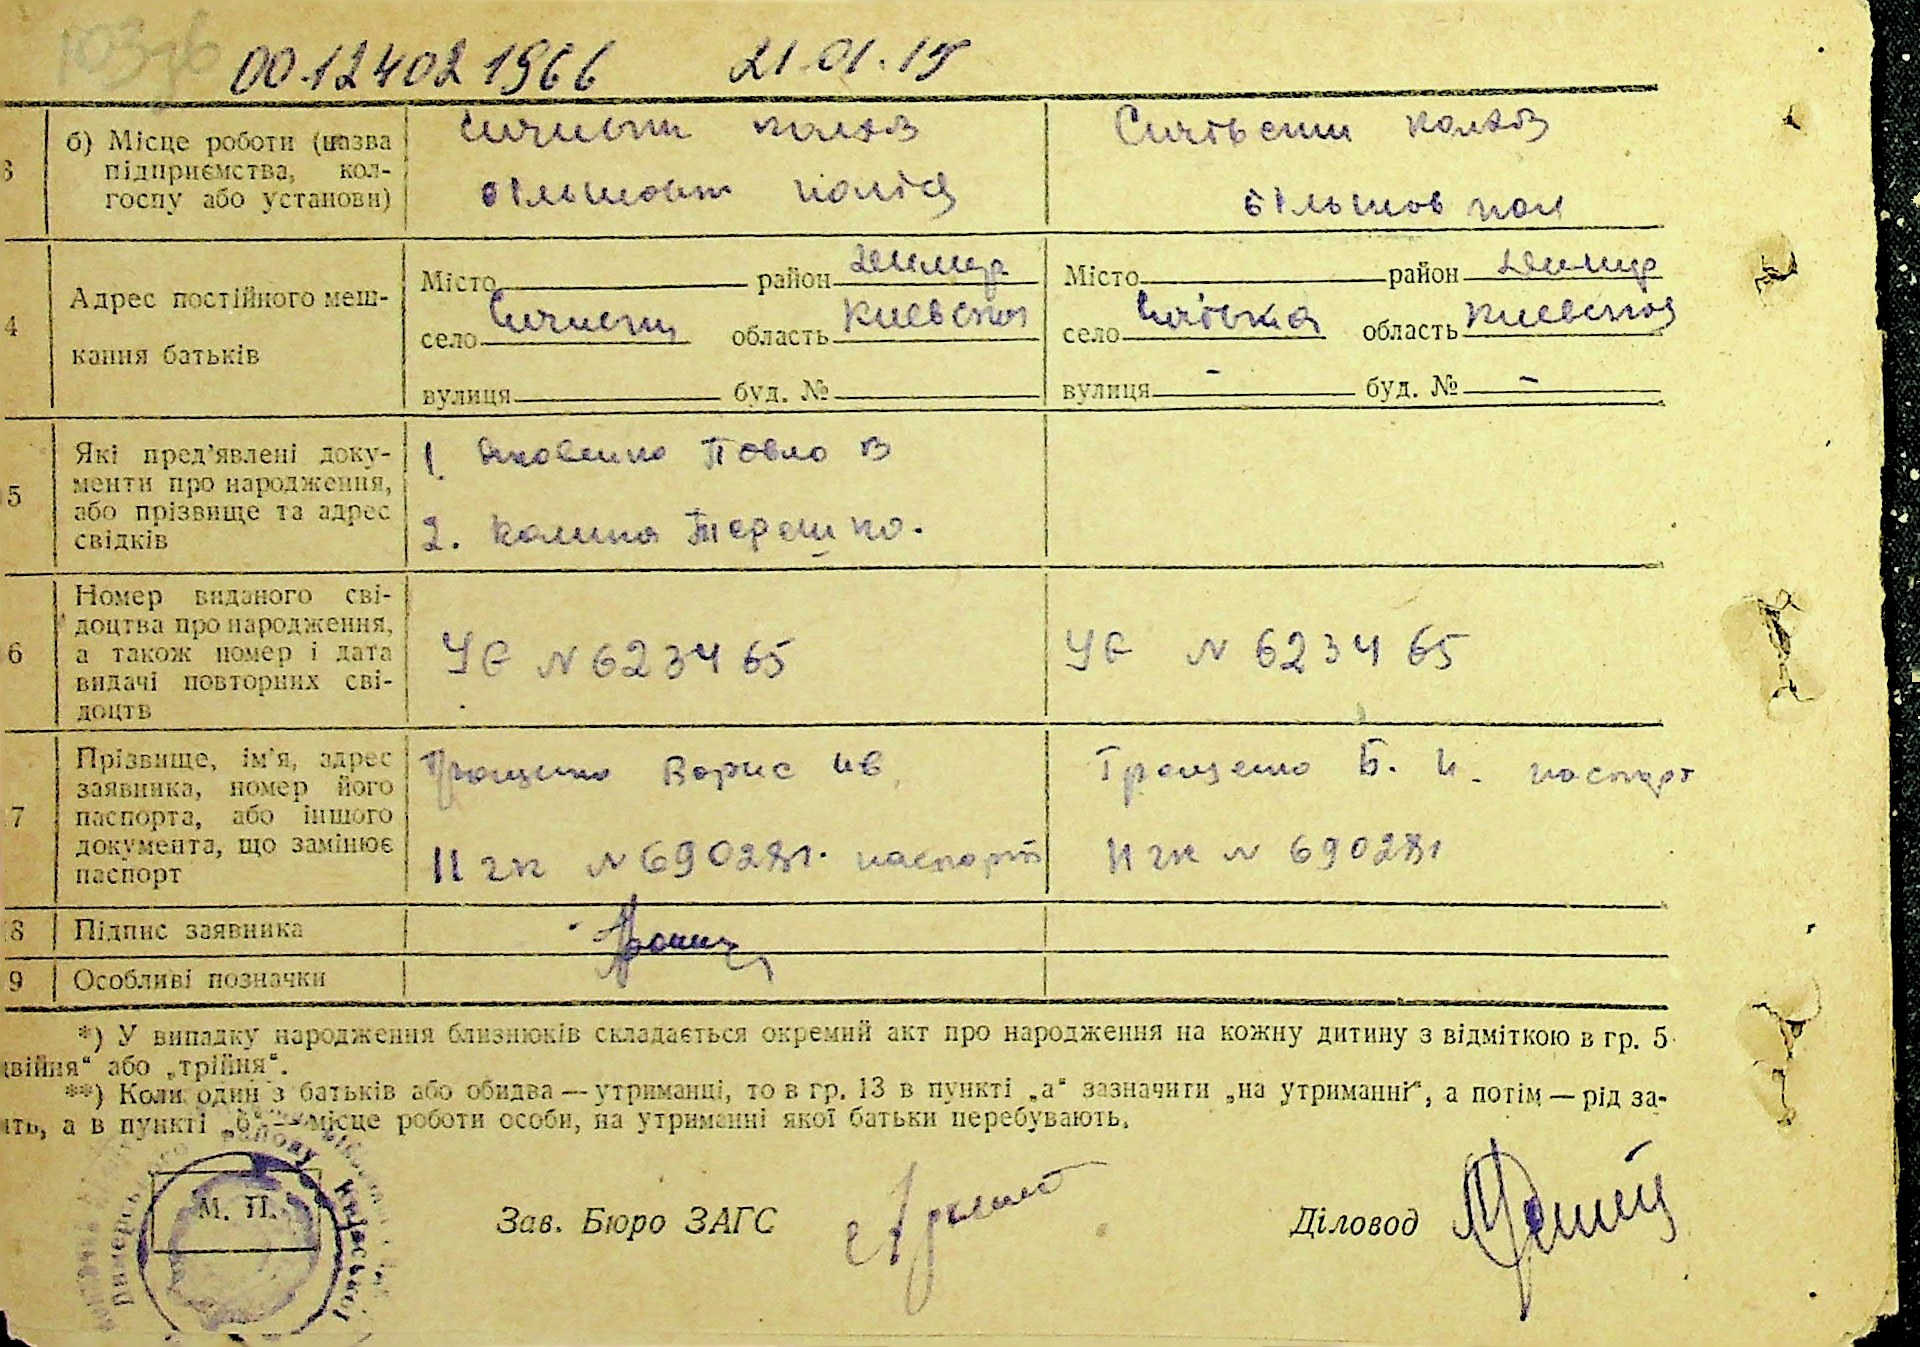 00.12402 1966 21.01.19
3 б) Місце роботи (назва підприємства, колгоспу або установи)
колхоз Ситівськи колхоз
більшовик поліся
більшов пол
4 Адрес постійного мешкання батьків
Місто район Димир
село область Киевской
вулиця буд. №
Місто район Димир
село область Киевской
вулиця - буд. № -
5 Які пред'явлені доку-
менти про народження,
або прізвище та адрес
свідків
1. Яковенко Павло В
2. Калина Терешко.
6 Номер виданого сві-
доцтва про народження,
а також номер і дата
видачі повторних сві-
доцтв
УЄ N 623465
УЄ N 623465
7 Прізвище, ім'я, адрес
заявника, номер його
паспорта, або іншого
документа, що замінює
паспорт
Грощенко Борис Ив
II гк N 690281. паспорт
Грощенко Б. И. паспорт
II гк N 690281
8 Підпис заявника
9 Особливі позначки
*) У випадку народження близнюків складається окремий акт про народження на кожну дитину з відміткою в гр. 5
двійня" або „трійня".
**) Коли один з батьків або обидва — утриманці, то в гр. 13 в пункті „а" зазначити „на утриманні", а потім — рід за-
ять, а в пункті „б" — місце роботи особи, на утриманні якої батьки перебувають.
М. П.
Зав. Бюро ЗАГС
Діловод